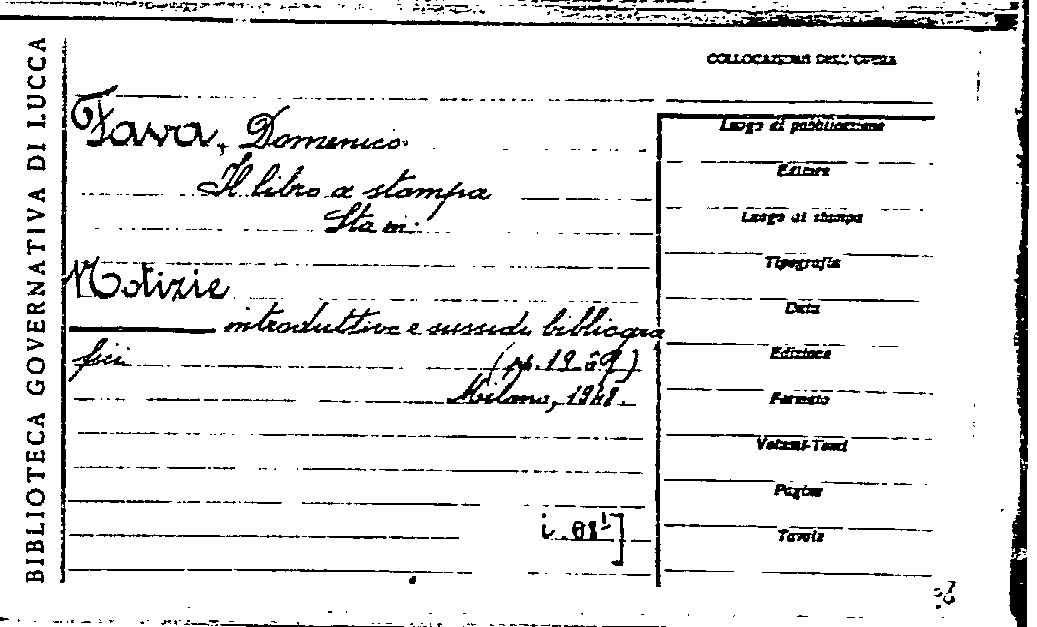 BIBLIOTECA GOVERNATIVA DI LUCCA
COLLOCAZIONE DELL'OPERA
Fava, Domenico
Il libro a stampa
Sta in:
Notizie
introduttive e sussidi bibliogra
fici
Milano, 1948.
Luogo di pubblicazione
Editore
Luogo di stampa
Tipografia
Data
Edizione
Formato
Volumi-Tomi
Pagine
Tavole